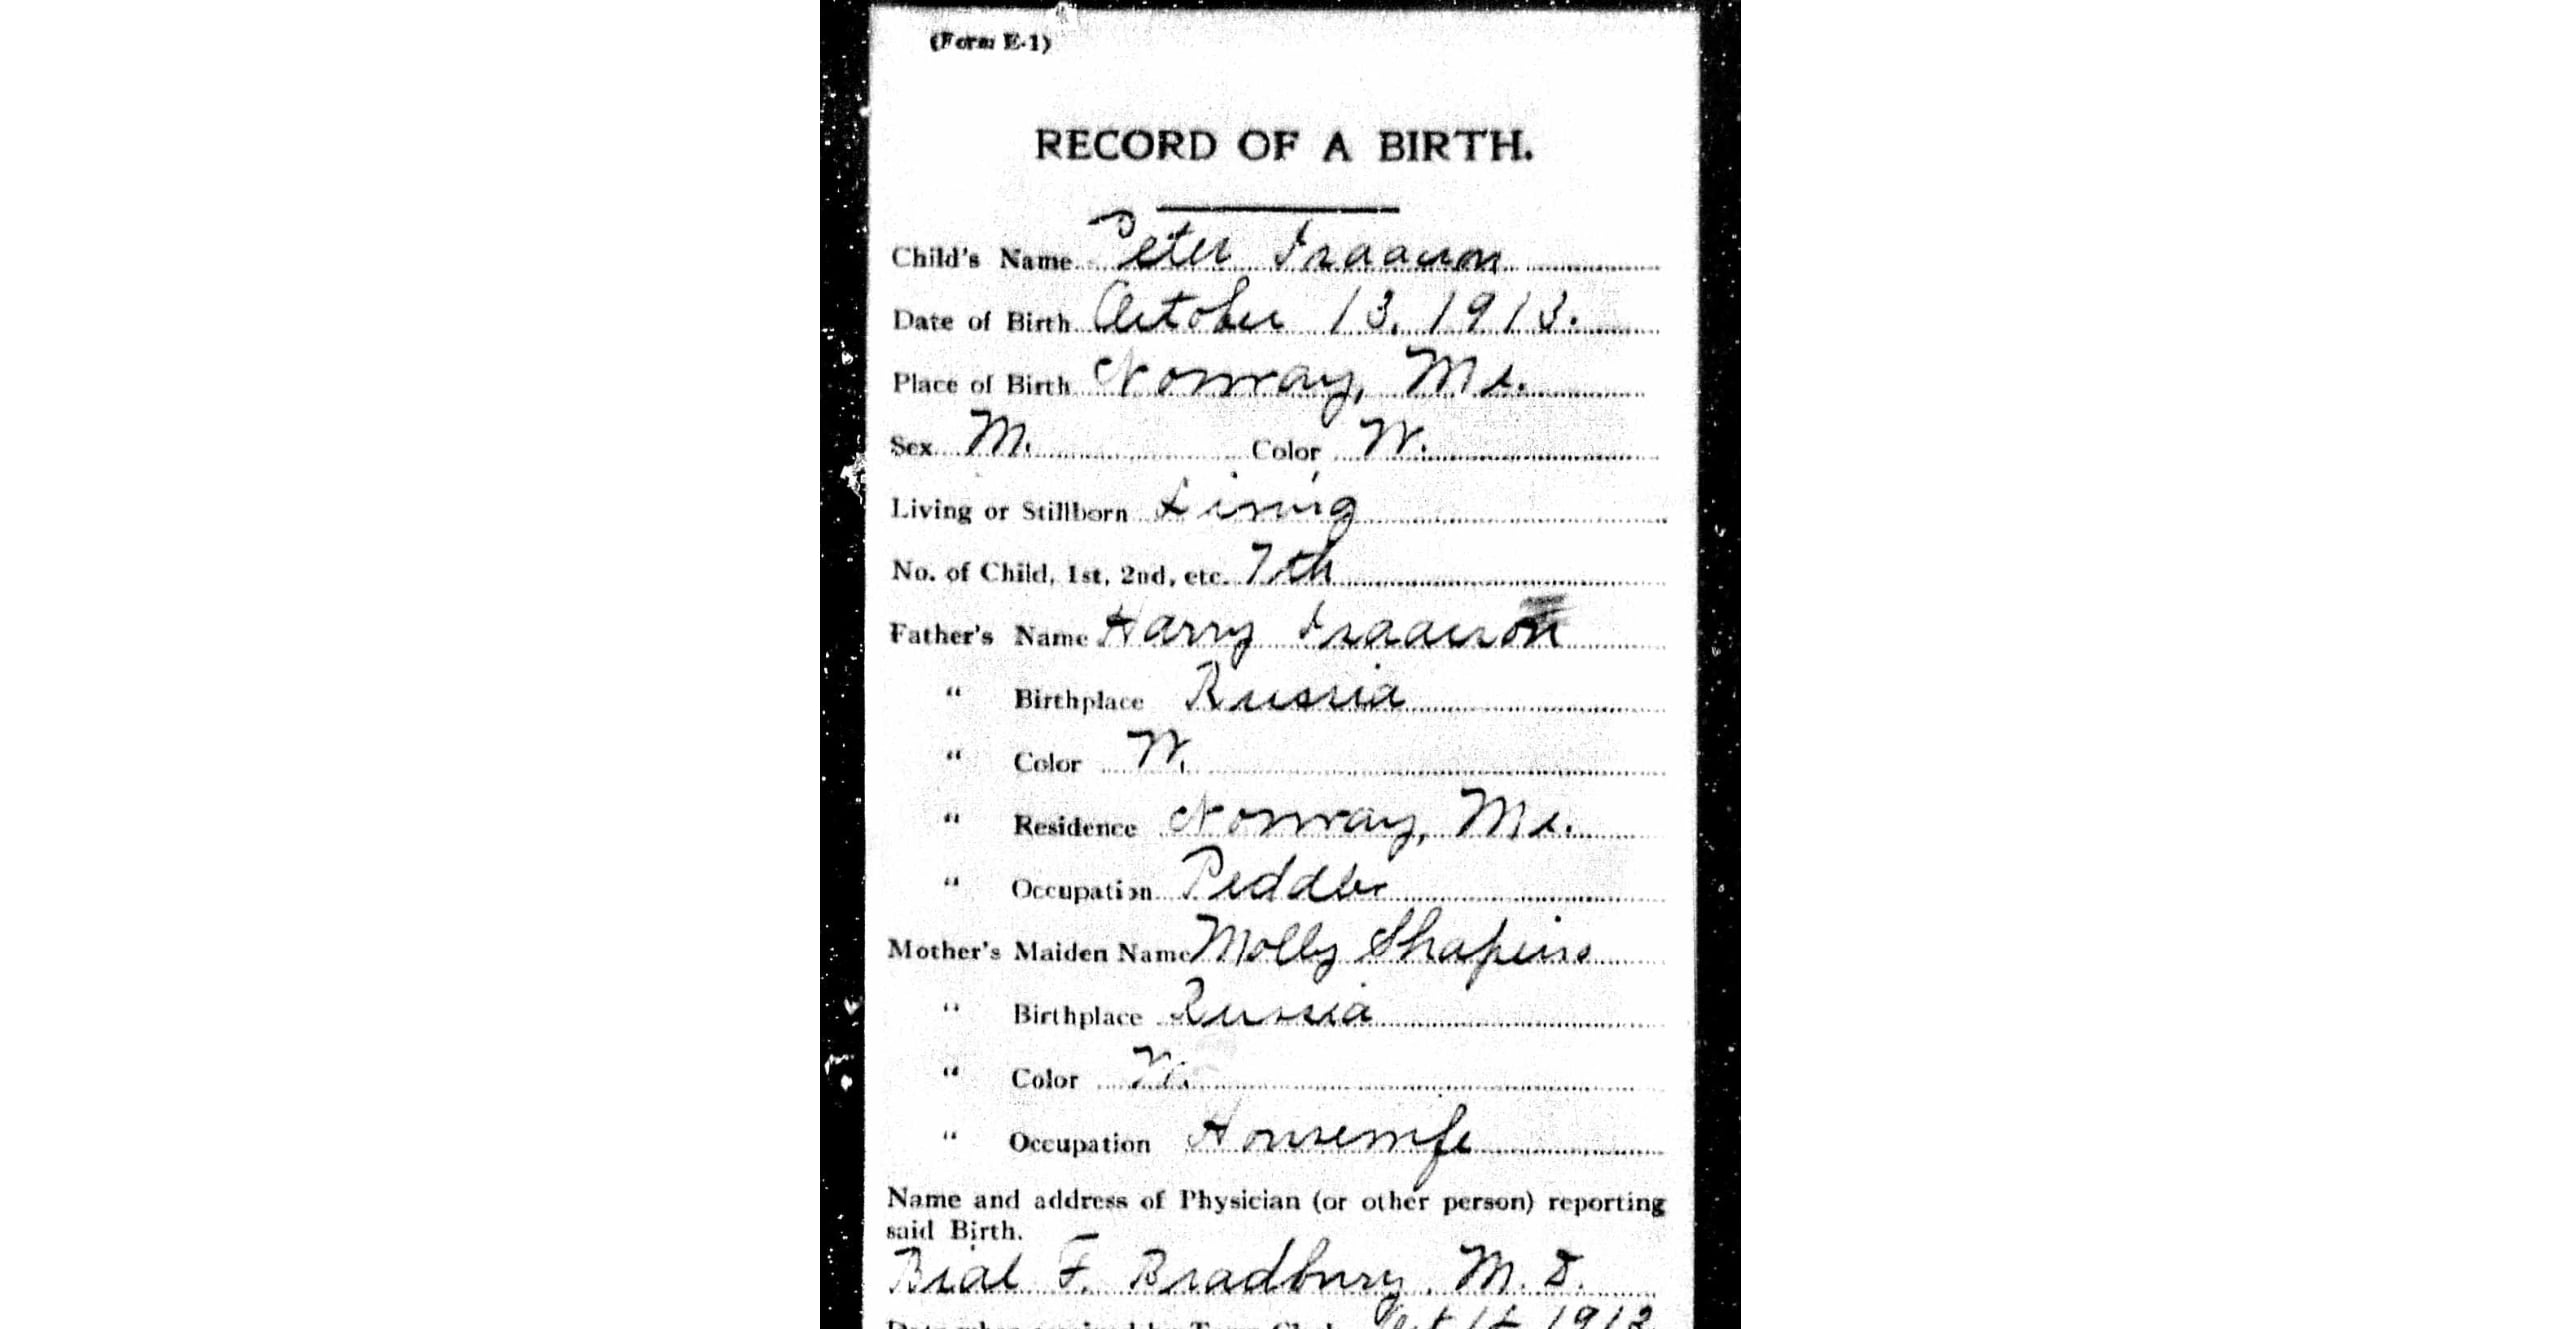 (Form E-1)
RECORD OF A BIRTH.
Child's Name Peter Isaacson
Date of Birth October 13, 1913.
Place of Birth Norway, Me.
Sex M. Color W.
Living or Stillborn Living
No. of Child, 1st, 2nd, etc. 7th
Father's Name Harry Isaacson
" Birthplace Russia
" Color W.
" Residence Norway, Me.
" Occupation Peddler
Mother's Maiden Name Molly Shapiro
" Birthplace Russia
" Color W.
" Occupation Housewife
Name and address of Physician (or other person) reporting
said Birth.
Bial F. Bradbury, M. D.